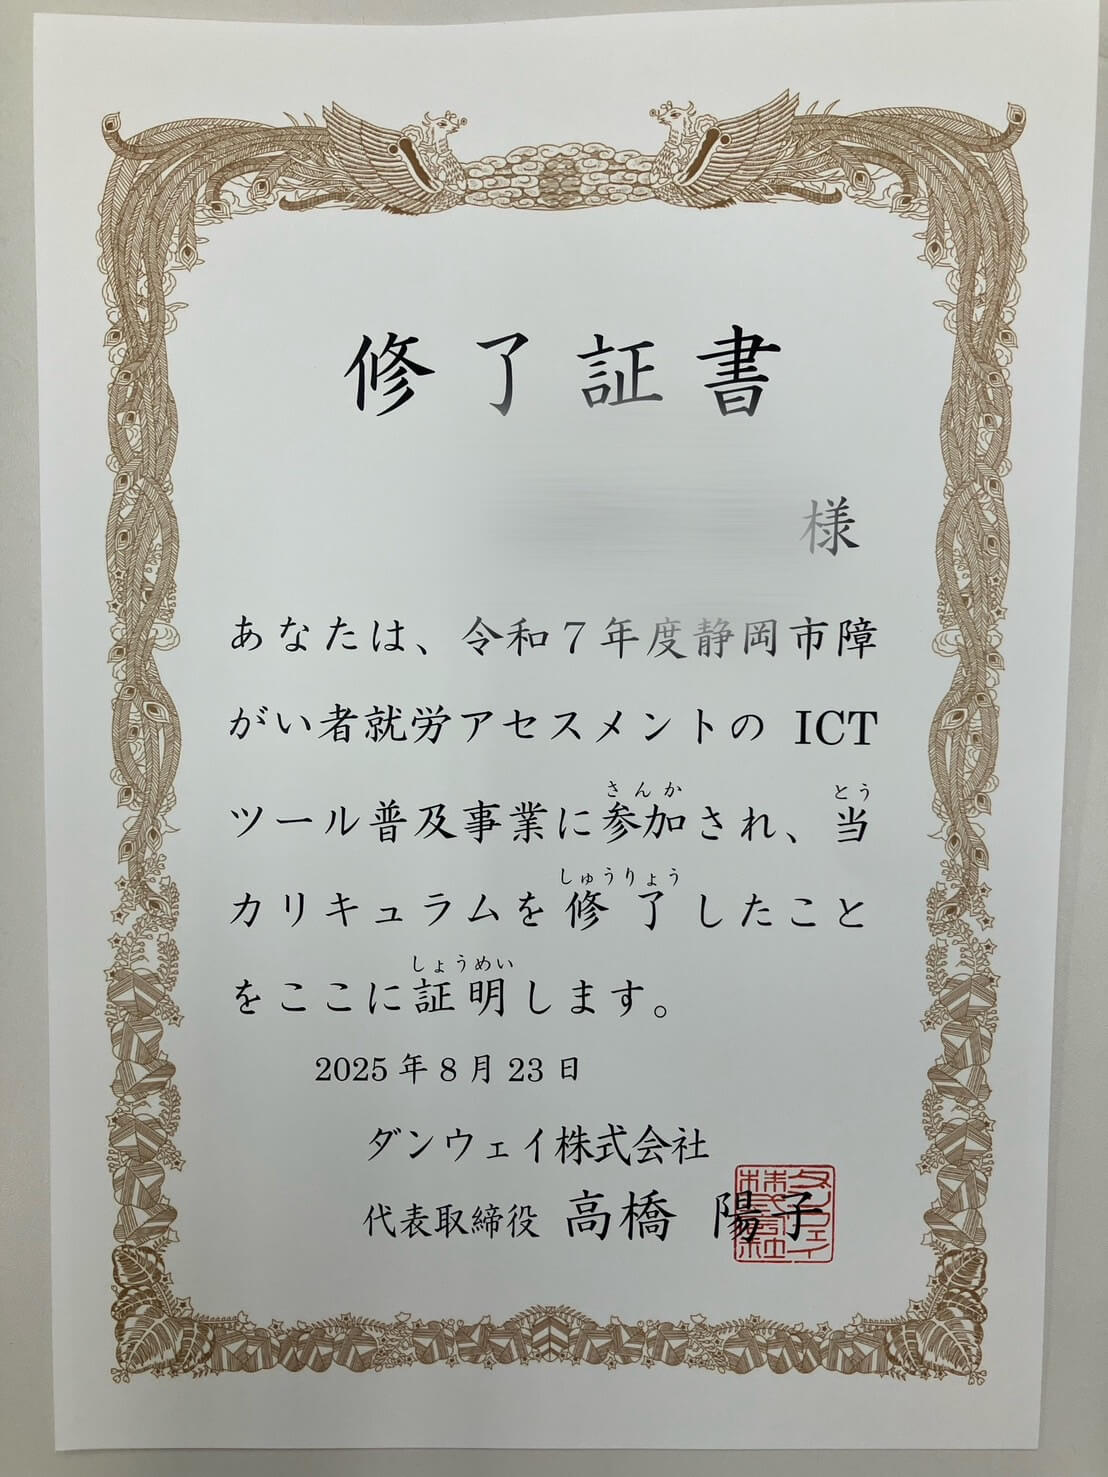 修了証書
様
あなたは、令和７年度静岡市障
がい者就労アセスメントの ICT
ツール普及事業に参加され、当
さんか とう
カリキュラムを修了したこと
しゅうりょう
をここに証明します。
しょうめい
2025 年 8 月 23 日
ダンウェイ株式会社
代表取締役 高橋 陽子
ダンウェイ株式会社